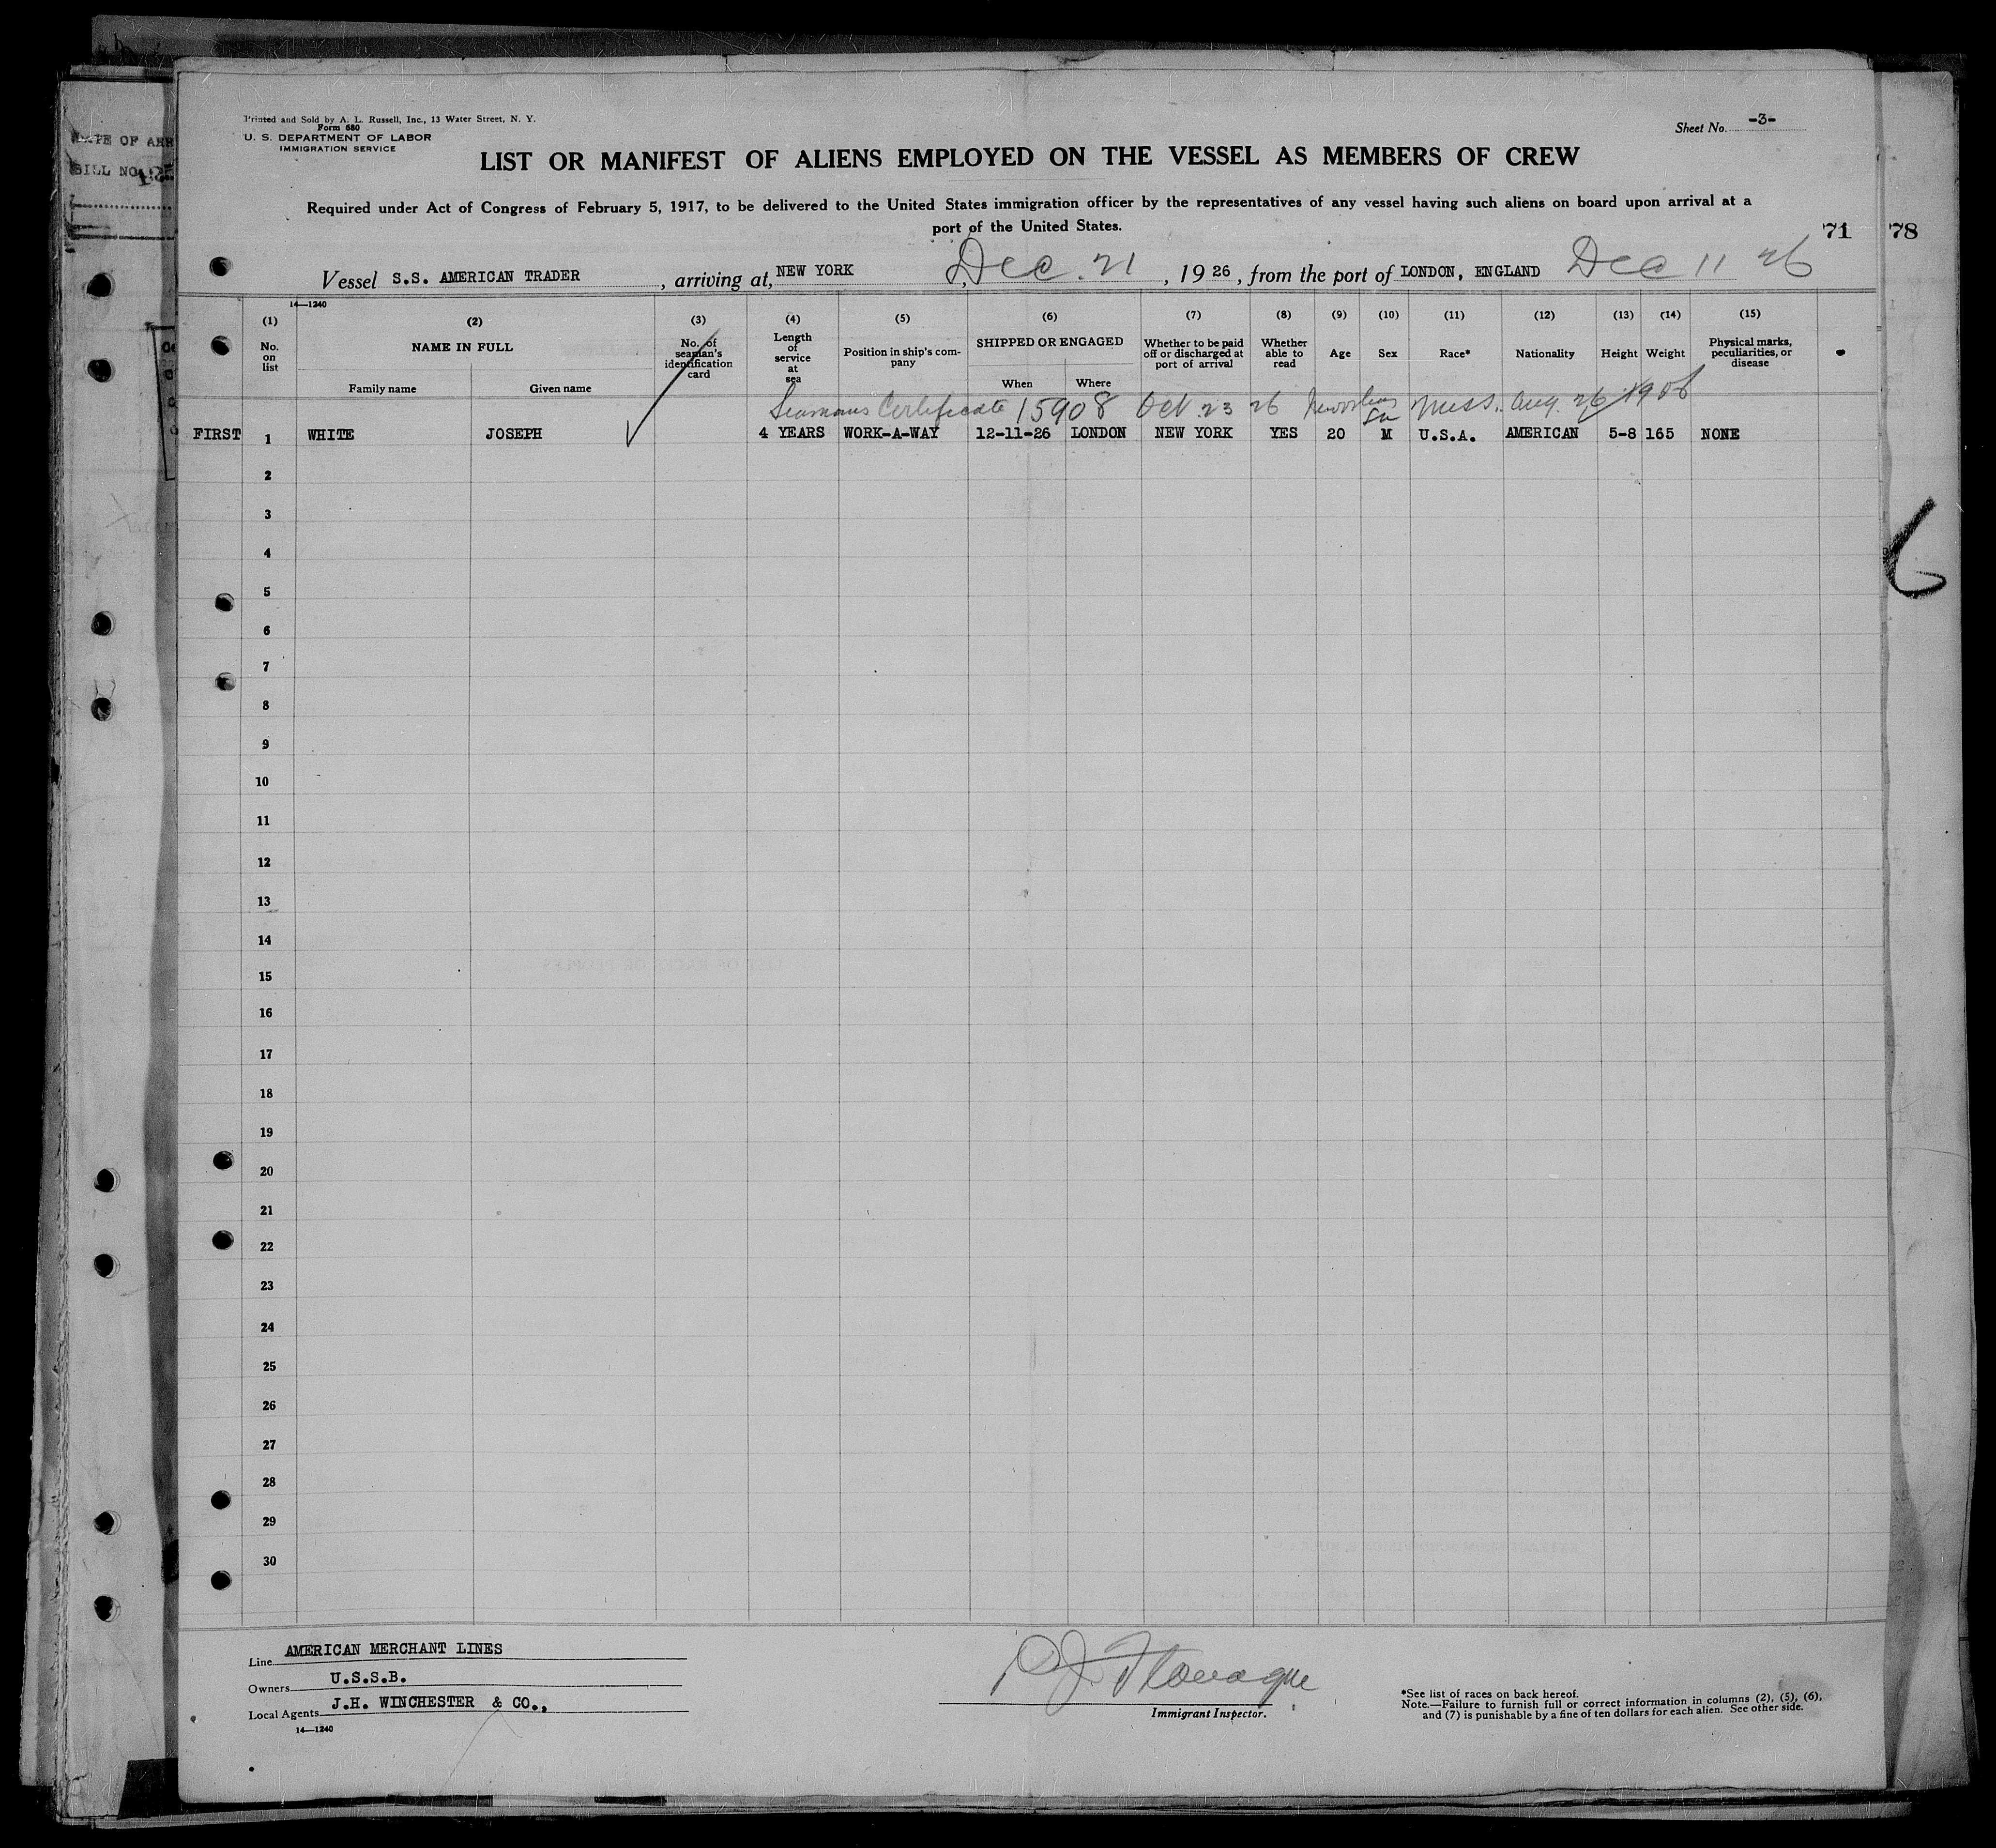 Printed and Sold by A. L. Russell, Inc., 13 Water Street, N. Y.
Form 680
U. S. DEPARTMENT OF LABOR
IMMIGRATION SERVICE
Sheet No. -3-
LIST OR MANIFEST OF ALIENS EMPLOYED ON THE VESSEL AS MEMBERS OF CREW
Required under Act of Congress of February 5, 1917, to be delivered to the United States immigration officer by the representatives of any vessel having such aliens on board upon arrival at a
port of the United States.
71 78
Vessel S.S. AMERICAN TRADER, arriving at, NEW YORK, Dec. 21, 1926, from the port of LONDON, ENGLAND Dec 11 26
14—1240
(1) (2) (3) (4) (5) (6) (7) (8) (9) (10) (11) (12) (13) (14) (15)
No. on list
NAME IN FULL
Family name
Given name
No. of seaman's identification card
Length of service at sea
Position in ship's company
SHIPPED OR ENGAGED
When
Where
Whether to be paid off or discharged at port of arrival
Whether able to read
Age
Sex
Race*
Nationality
Height
Weight
Physical marks, peculiarities, or disease
Seamans Certificate 15908 Oct 23 26 New Orleans La Miss. Aug. 26 1906
FIRST 1 WHITE JOSEPH 4 YEARS WORK-A-WAY 12-11-26 LONDON NEW YORK YES 20 M U.S.A. AMERICAN 5-8 165 NONE
2
3
4
5
6
7
8
9
10
11
12
13
14
15
16
17
18
19
20
21
22
23
24
25
26
27
28
29
30
6
Line AMERICAN MERCHANT LINES
Owners U.S.S.B.
Local Agents J.H. WINCHESTER & CO.,
14—1240
Immigrant Inspector.
*See list of races on back hereof.
Note.—Failure to furnish full or correct information in columns (2), (5), (6),
and (7) is punishable by a fine of ten dollars for each alien. See other side.